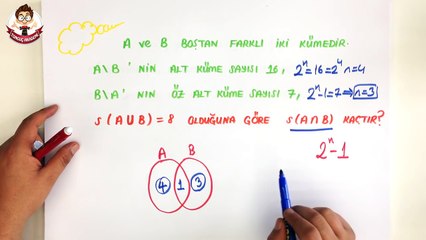 A ve B BOŞTAN FARKLI İKİ KÜMEDİR.
A\B' NİN ALT KÜME SAYISI 16, 2ⁿ=16=2⁴ n=4
B\A' NIN ÖZ ALT KÜME SAYISI 7, 2ⁿ-1=7⇒n=3
s(AUB)=8 OLDUĞUNA GÖRE s(A∩B) KAÇTIR?
2ⁿ-1
A B
4 1 3